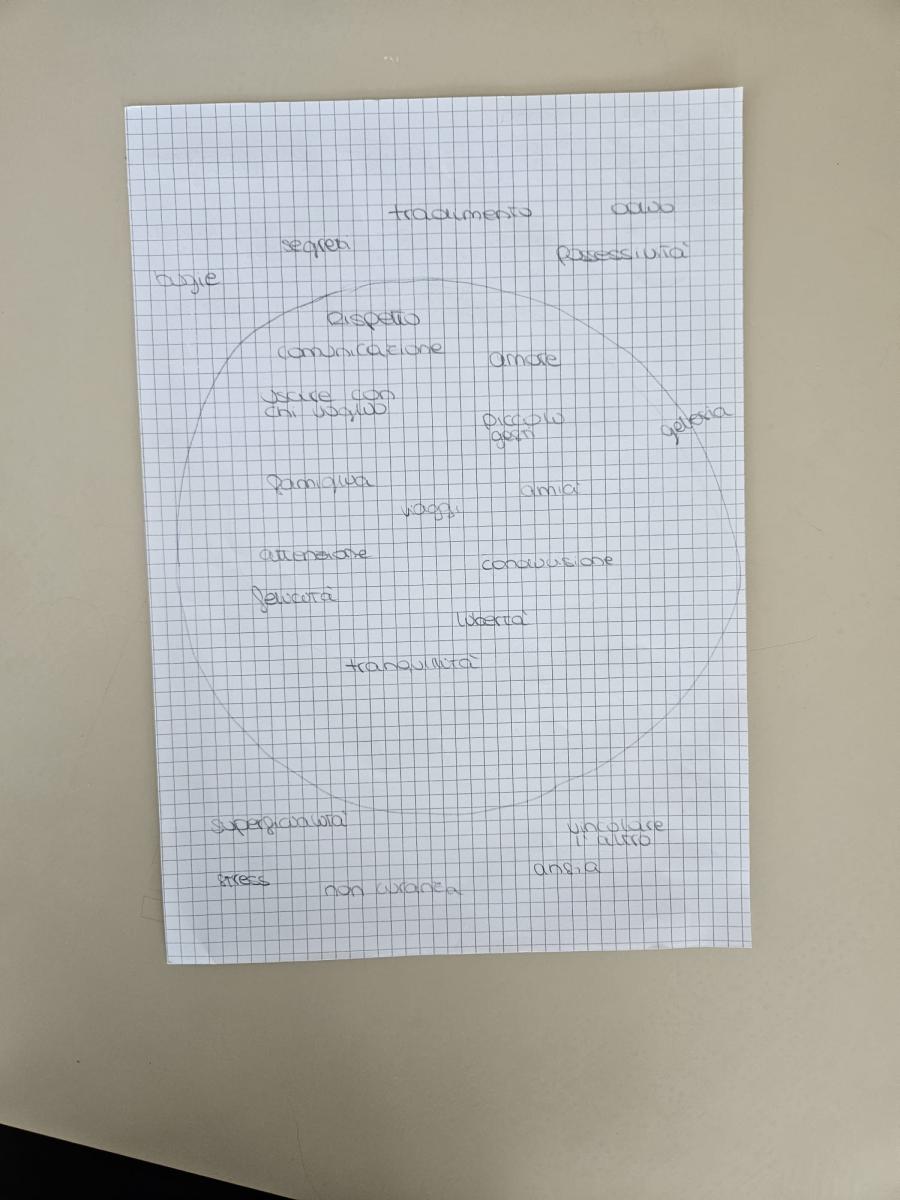 tradimento odio
segreti possessività
bugie
rispetto
comunicazione amore
uscire con
chi voglio
piccolo
gesti
gelosia
famiglia amici
viaggi
attenzione condivisione
felicità
libertà
tranquillità
superficialità
vincolare
l'altro
ansia
stress non curanza